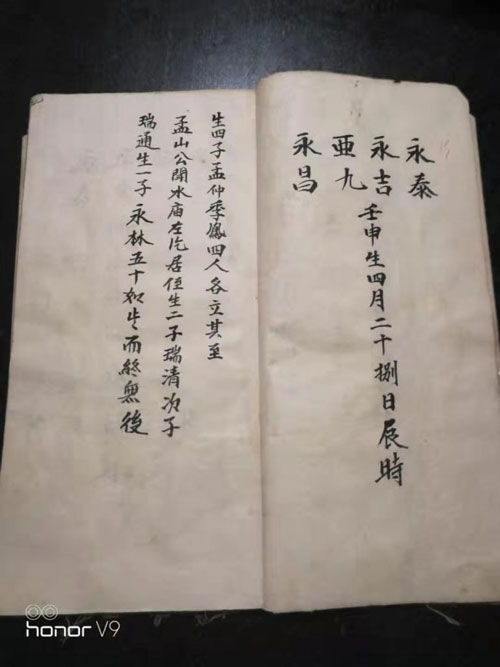 永泰
永吉壬申生四月二十捌日辰時
亜九
永昌
生四子孟仲季鳳四人各立其至
孟山公開水庙左居住生二子瑞清次子
瑞通生一子 永林五十而絲無後
honor V9